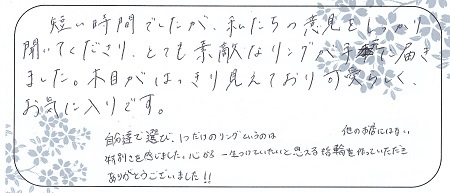 短い時間でしたが、私たちの意見をしっかり
聞いてくださり、とても素敵なリングが手元に届き
ました。木目がはっきり見えており可愛らしく、
お気に入りです。
自分達で選び、1つだけのリングというのは 他のお店にはない
特別さを感じました。心から一生つけていたいと思える指輪を作っていただき
ありがとうございました!!